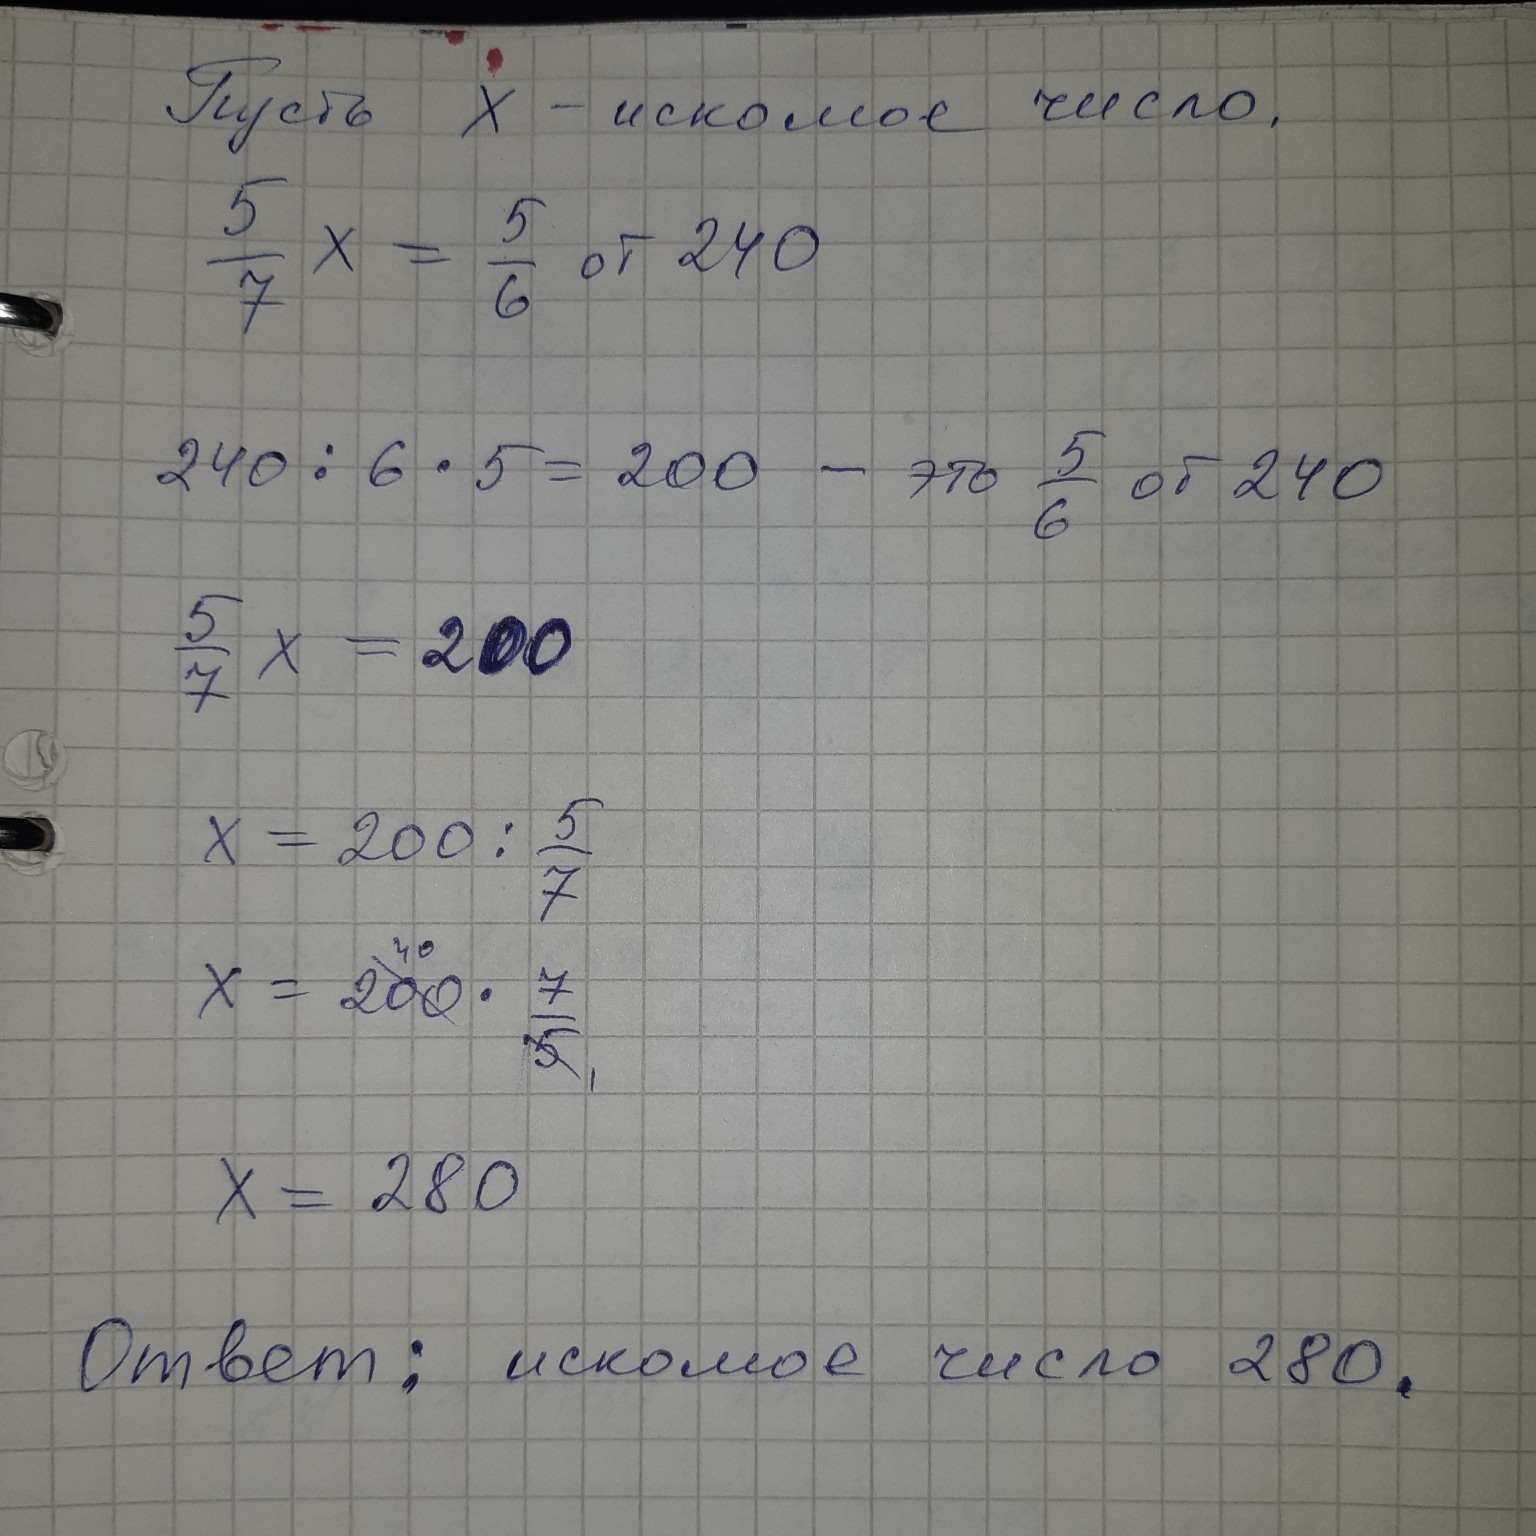 Пусть x - искомое число.
5/7 x = 5/6 от 240
240 : 6 · 5 = 200 - это 5/6 от 240
5/7 x = 200
x = 200 : 5/7
x = 200 40 · 7/5 1
x = 280
Ответ: искомое число 280.